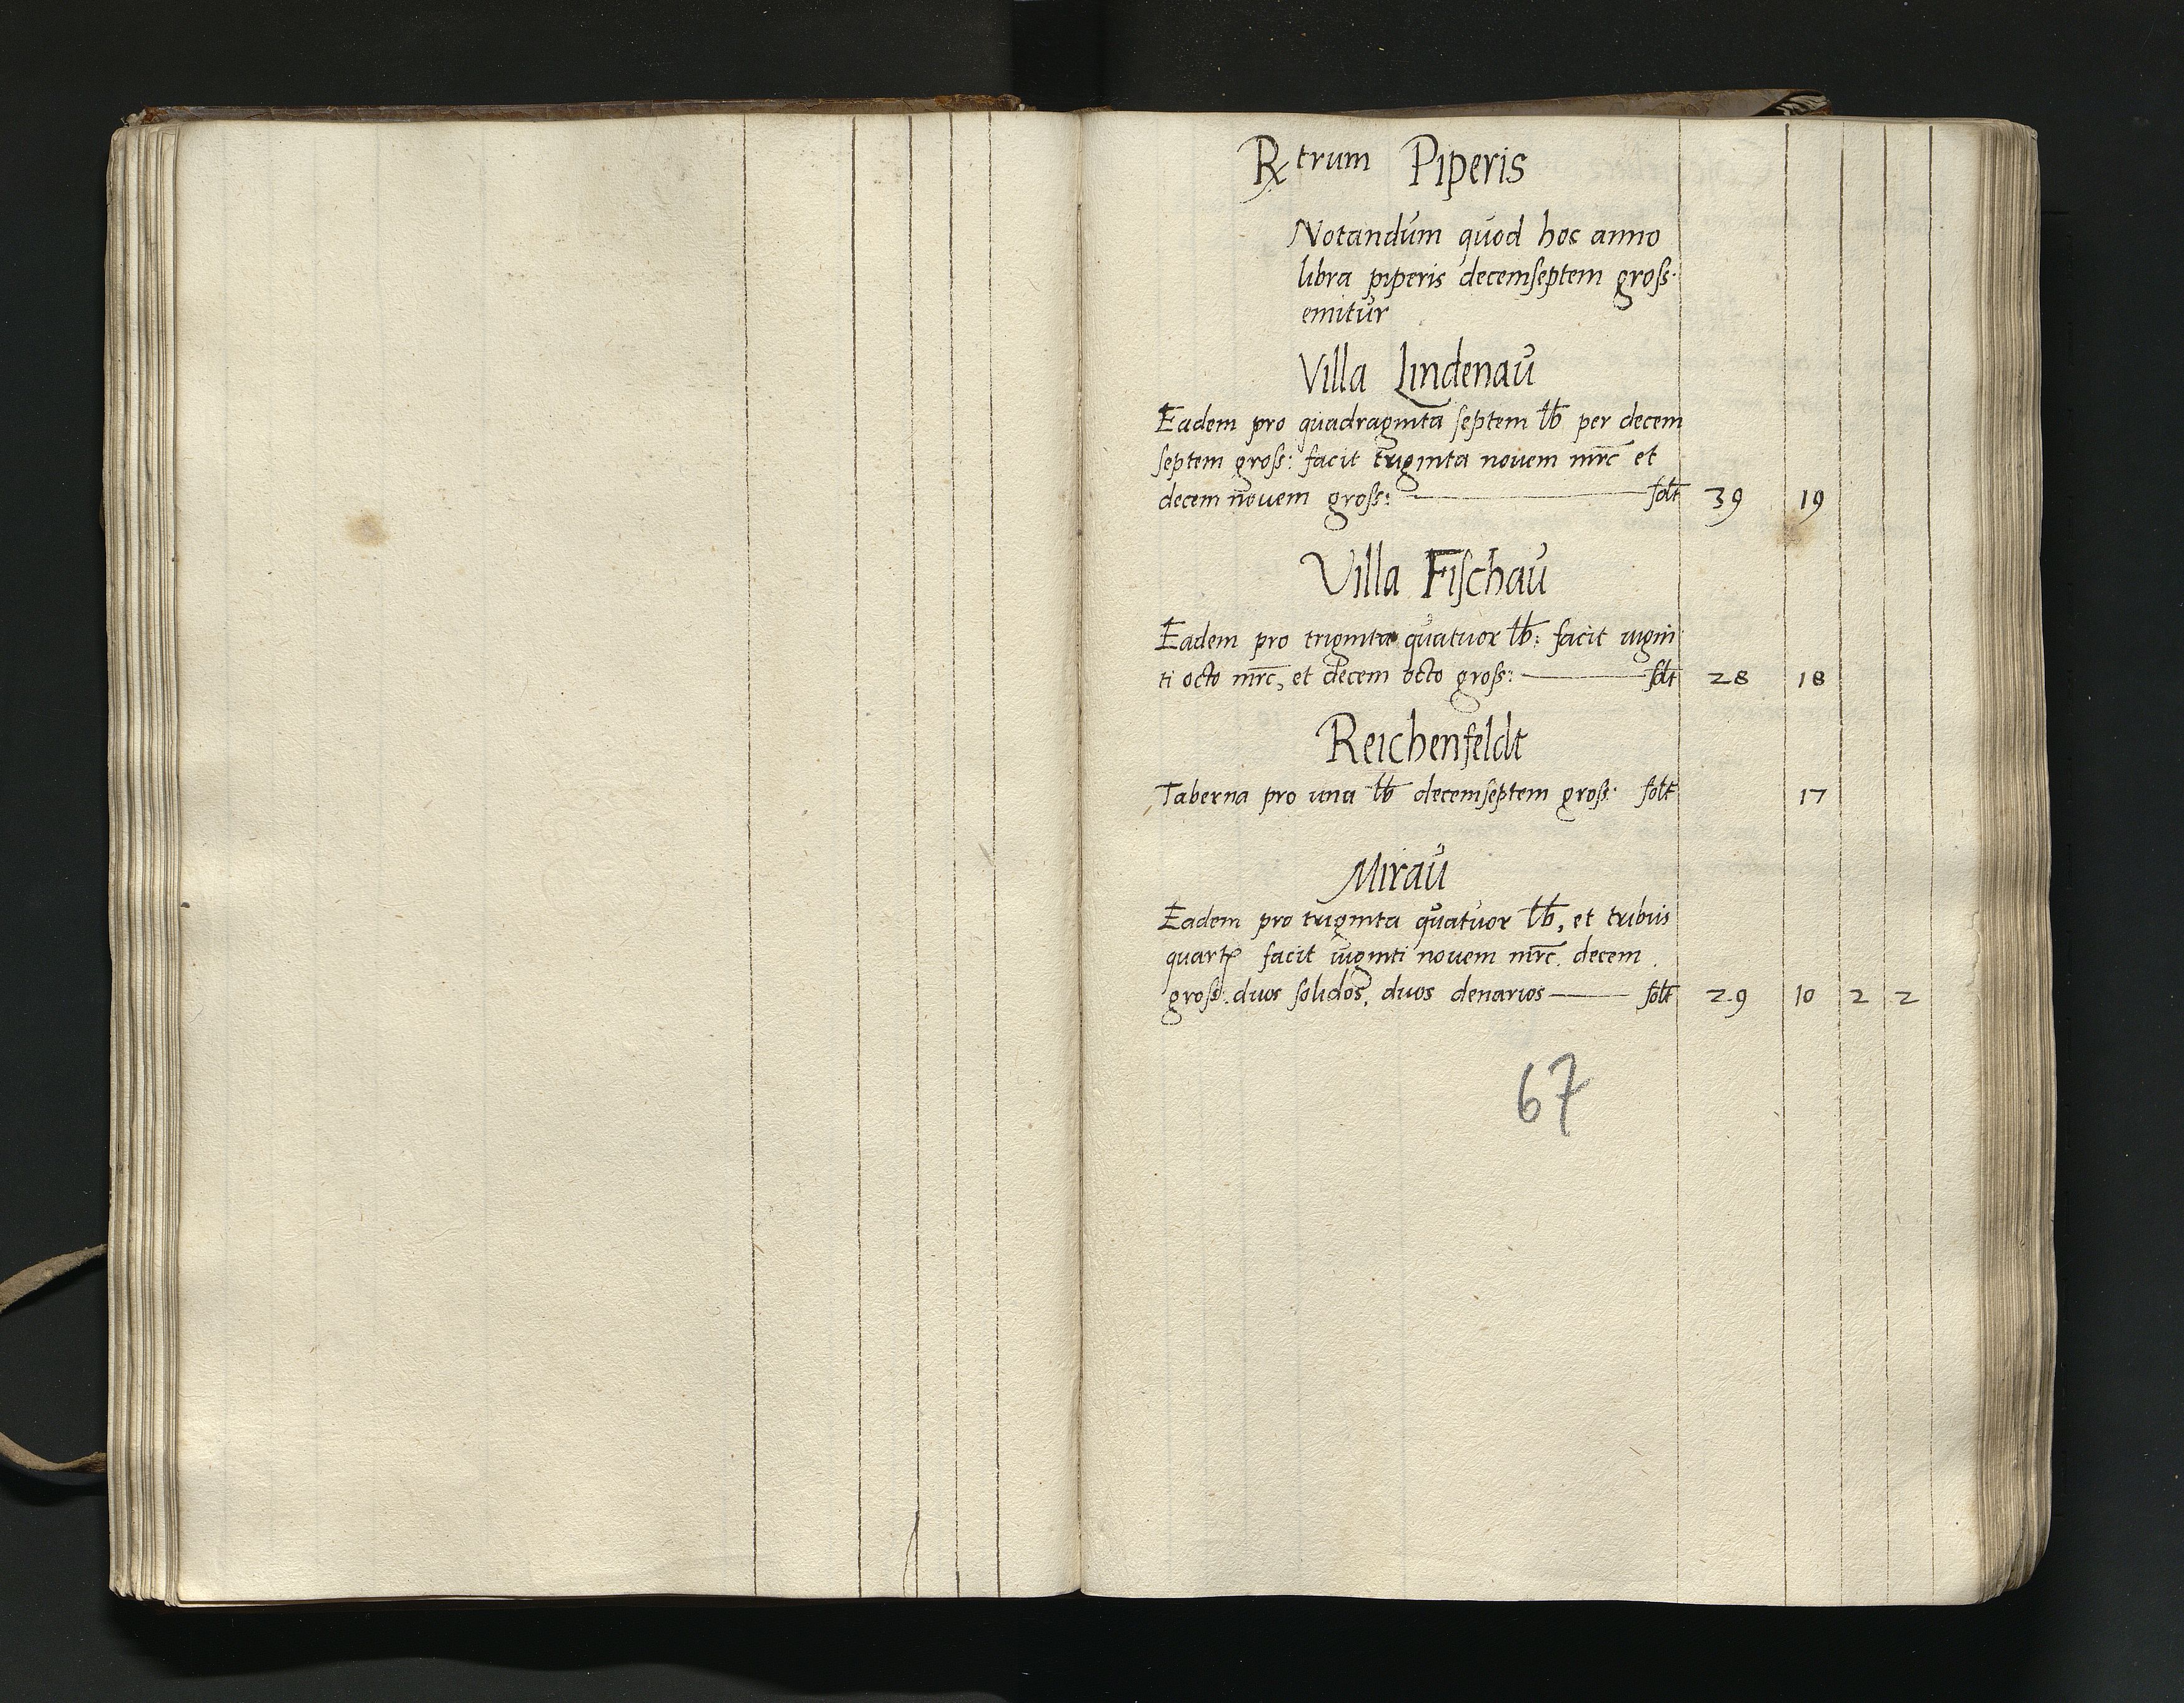 Rx trum Piperis
Notandum quod hoc anno
libra piperis decemſeptem groſs:
emitur
Villa Lindenau
Eadem pro quadraginta ſeptem lb per decem
ſeptem groſs: facit triginta nouem mrc et
decem nouem groſs: solt 39 19
Villa Fiſchau
Eadem pro triginta quatuor lb: facit uigin
ti octo mrc, et decem octo groſs: solt 28 18
Reichenfeldt
Taberna pro una lb decemſeptem groſs: solt 17
Mirau
Eadem pro triginta quatuor lb, et tribus
quart facit uiginti nouem mrc. decem
groſs: duos ſolidos, duos denarios solt 29 10 2 2
67